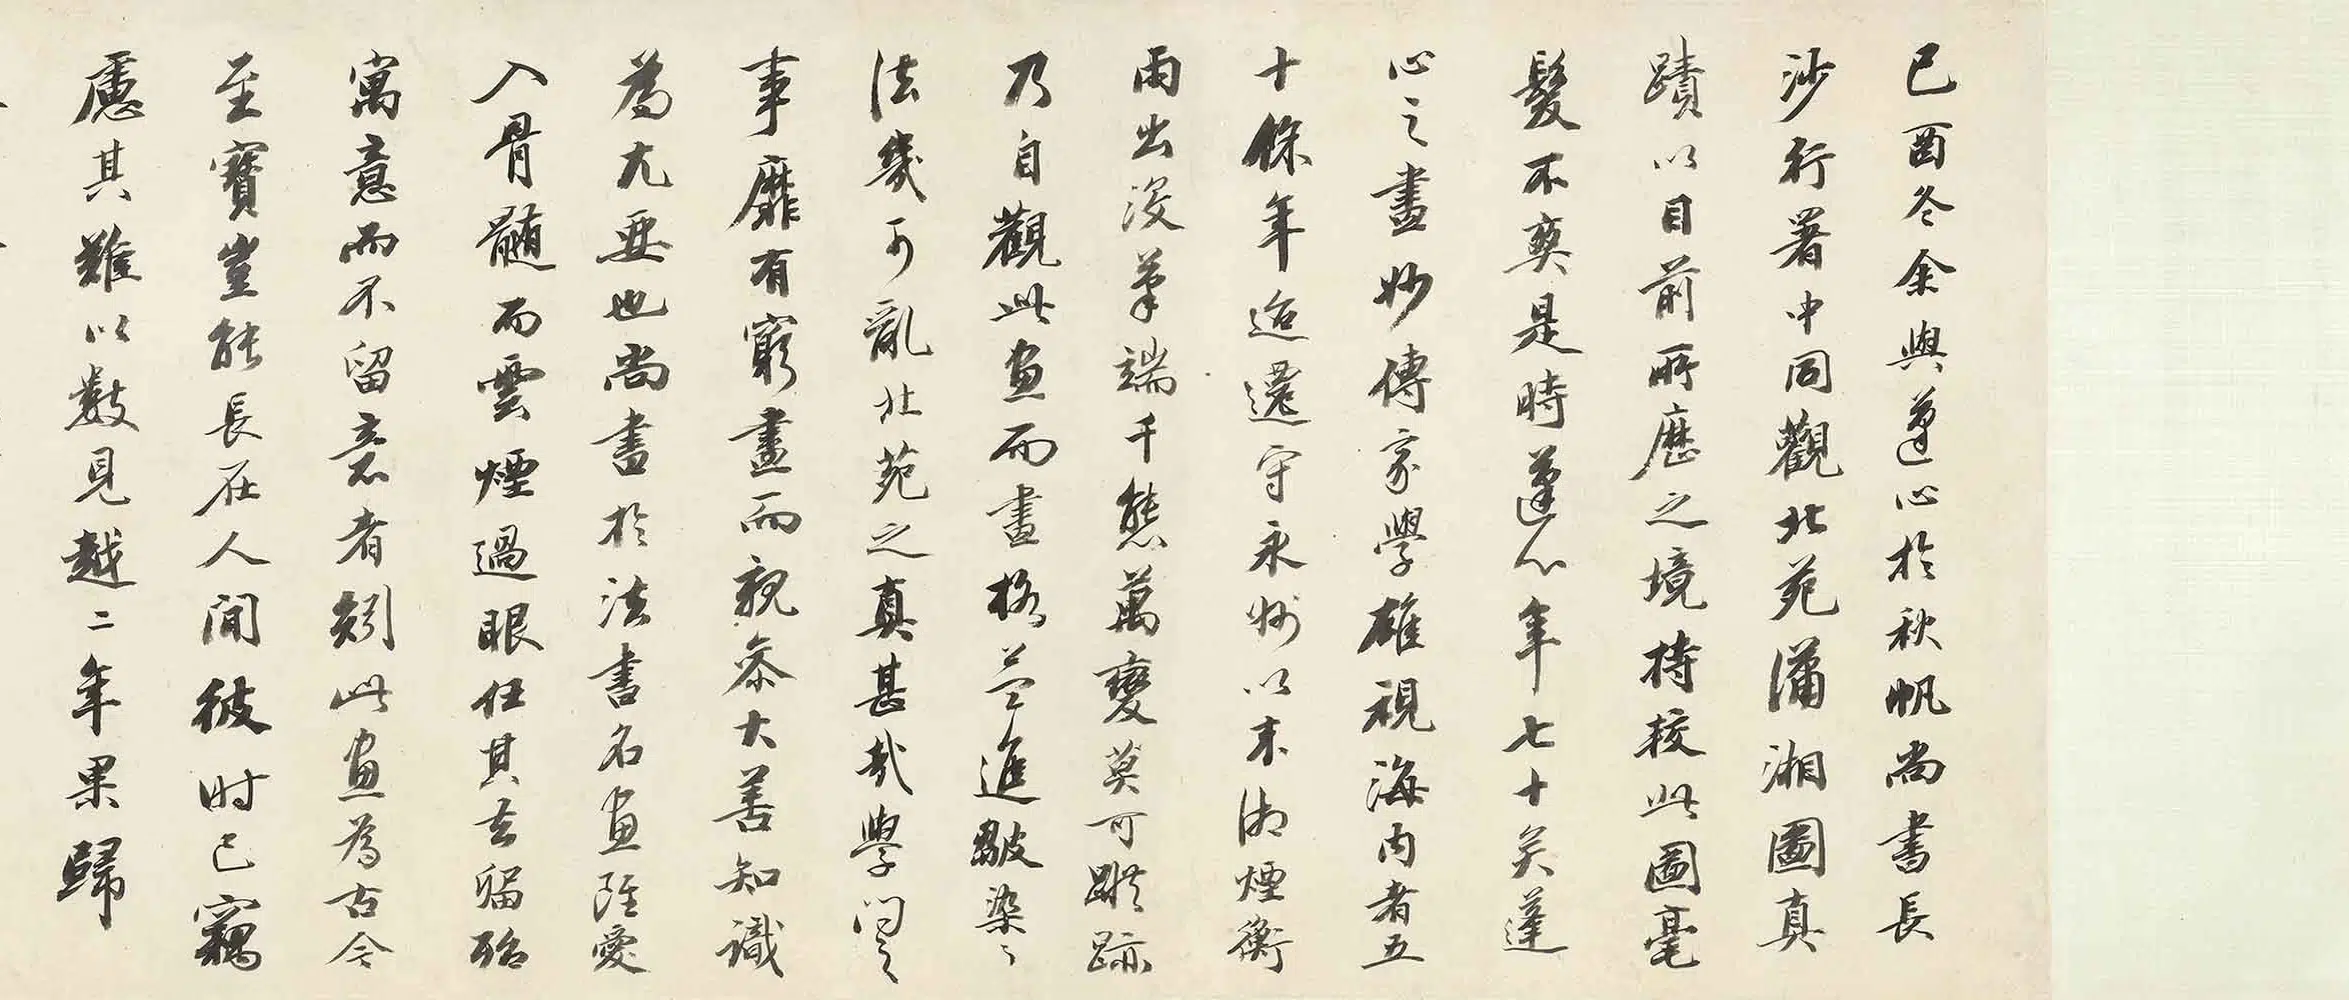 己酉冬余與蓬心於秋帆尚書長
沙行署中同觀北苑瀟湘圖真
蹟以目前所歷之境持校此圖毫
髮不爽是時蓬心年七十矣蓬
心之畫妙傳家學雄視海內者五
十餘年迨還守永州以來湘煙衡
雨出沒筆端千態萬變莫可蹤跡
乃自觀此畫而畫格益進皴染〻
法幾可亂北苑之真甚哉學問之
事靡有窮盡而親參大善知識
為尤要也尚書於法書名畫雖愛
入骨髓而雲煙過眼任其去留殆
寓意而不留意者矧此畫為古今
至寶豈能長在人間彼時已竊
慮其難以數見越二年果歸